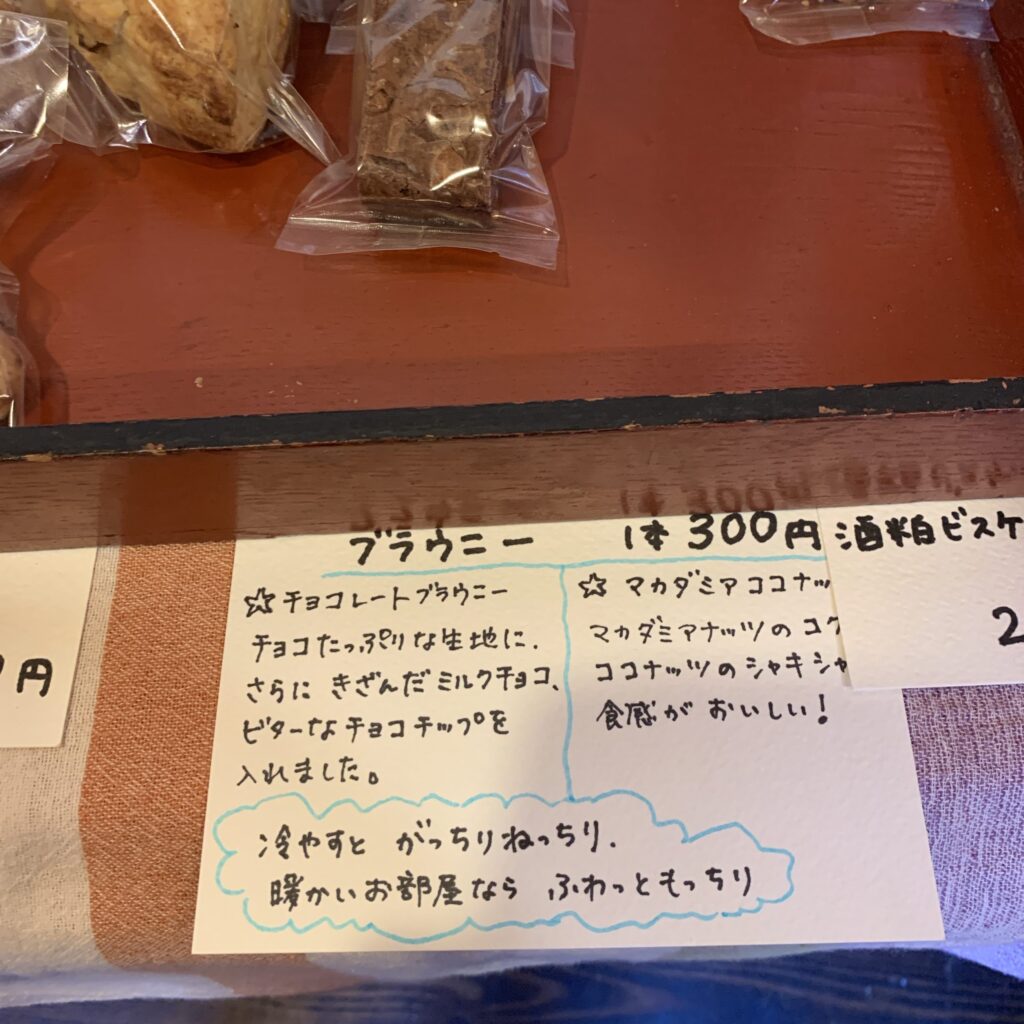 ブラウニー 1本 300円
☆チョコレートブラウニー
チョコたっぷりな生地に、
さらに きざんだミルクチョコ、
ビターなチョコチップを
入れました。
☆ マカダミアココナッ
マカダミアナッツのコク
ココナッツのシャキシャ
食感が おいしい!
冷やすと がっちりねっちり、
暖かいお部屋なら ふわっともっちり
酒粕ビスケ
2
円